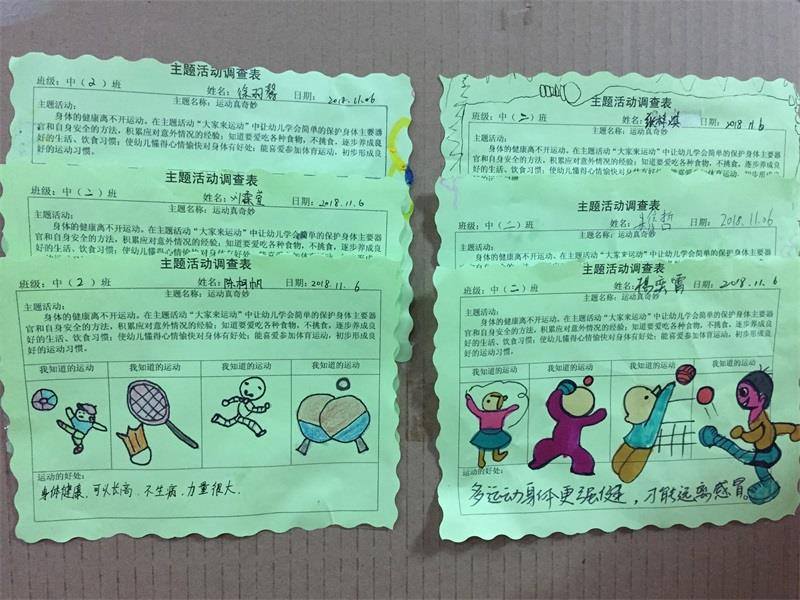 主题活动调查表
班级：中（2）班 姓名：徐羽馨 日期：2018.11.06
主题名称：运动真奇妙
主题活动：
身体的健康离不开运动。在主题活动“大家来运动”中让幼儿学会简单的保护身体主要器
官和自身安全的方法，积累应对意外情况的经验；知道要爱吃各种食物，不挑食，逐步养成良
好的生活、饮食习惯；使幼儿懂得心情愉快对身体有好处；能喜爱参加体育运动，初步形成良
好的运动习惯。
主题活动调查表
班级：中（二）班 姓名：刘霖萱 日期：2018.11.6
主题名称：运动真奇妙
主题活动：
身体的健康离不开运动。在主题活动“大家来运动”中让幼儿学会简单的保护身体主要器
官和自身安全的方法，积累应对意外情况的经验；知道要爱吃各种食物，不挑食，逐步养成良
好的生活、饮食习惯；使幼儿懂得心情愉快对身体有好处；能喜爱参加体育运动，初步形成良
主题活动调查表
班级：中（2）班 姓名：陈柯帆 日期：2018.11.6
主题名称：运动真奇妙
主题活动：
身体的健康离不开运动。在主题活动“大家来运动”中让幼儿学会简单的保护身体主要器
官和自身安全的方法，积累应对意外情况的经验；知道要爱吃各种食物，不挑食，逐步养成良
好的生活、饮食习惯；使幼儿懂得心情愉快对身体有好处；能喜爱参加体育运动，初步形成良
好的运动习惯。
我知道的运动 我知道的运动 我知道的运动 我知道的运动
运动的好处：
身体健康，可以长高，不生病，力量很大。
主题活动调查表
班级：中（二）班 姓名： 日期：2018.11.6
主题名称：运动真奇妙
主题活动：
身体的健康离不开运动。在主题活动“大家来运动”中让幼儿学会简单的保护身体主要器
官和自身安全的方法，积累应对意外情况的经验；知道要爱吃各种食物，不挑食，逐步养成良
好的生活、饮食习惯；使幼儿懂得心情愉快对身体有好处；能喜爱参加体育运动，初步形成良
主题活动调查表
班级：中（二）班 姓名： 日期：2018.11.06
主题名称：运动真奇妙
主题活动：
身体的健康离不开运动。在主题活动“大家来运动”中让幼儿学会简单的保护身体主要器
官和自身安全的方法，积累应对意外情况的经验；知道要爱吃各种食物，不挑食，逐步养成良
主题活动调查表
班级：中（二）班 姓名：杨奕霄 日期：2018.11.6
主题名称：运动真奇妙
主题活动：
身体的健康离不开运动。在主题活动“大家来运动”中让幼儿学会简单的保护身体主要器
官和自身安全的方法，积累应对意外情况的经验；知道要爱吃各种食物，不挑食，逐步养成良
好的生活、饮食习惯；使幼儿懂得心情愉快对身体有好处；能喜爱参加体育运动，初步形成良
好的运动习惯。
我知道的运动 我知道的运动 我知道的运动 我知道的运动
运动的好处：
多运动身体更强健，才能远离感冒。